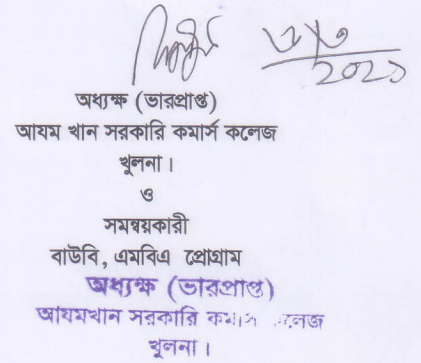 ২০২১
অধ্যক্ষ (ভারপ্রাপ্ত)
আযম খান সরকারি কমার্স কলেজ
খুলনা।
ও
সমন্বয়কারী
বাউবি, এমবিএ প্রোগ্রাম
অধ্যক্ষ (ভারপ্রাপ্ত)
আযমখান সরকারি কমার্স কলেজ
খুলনা।